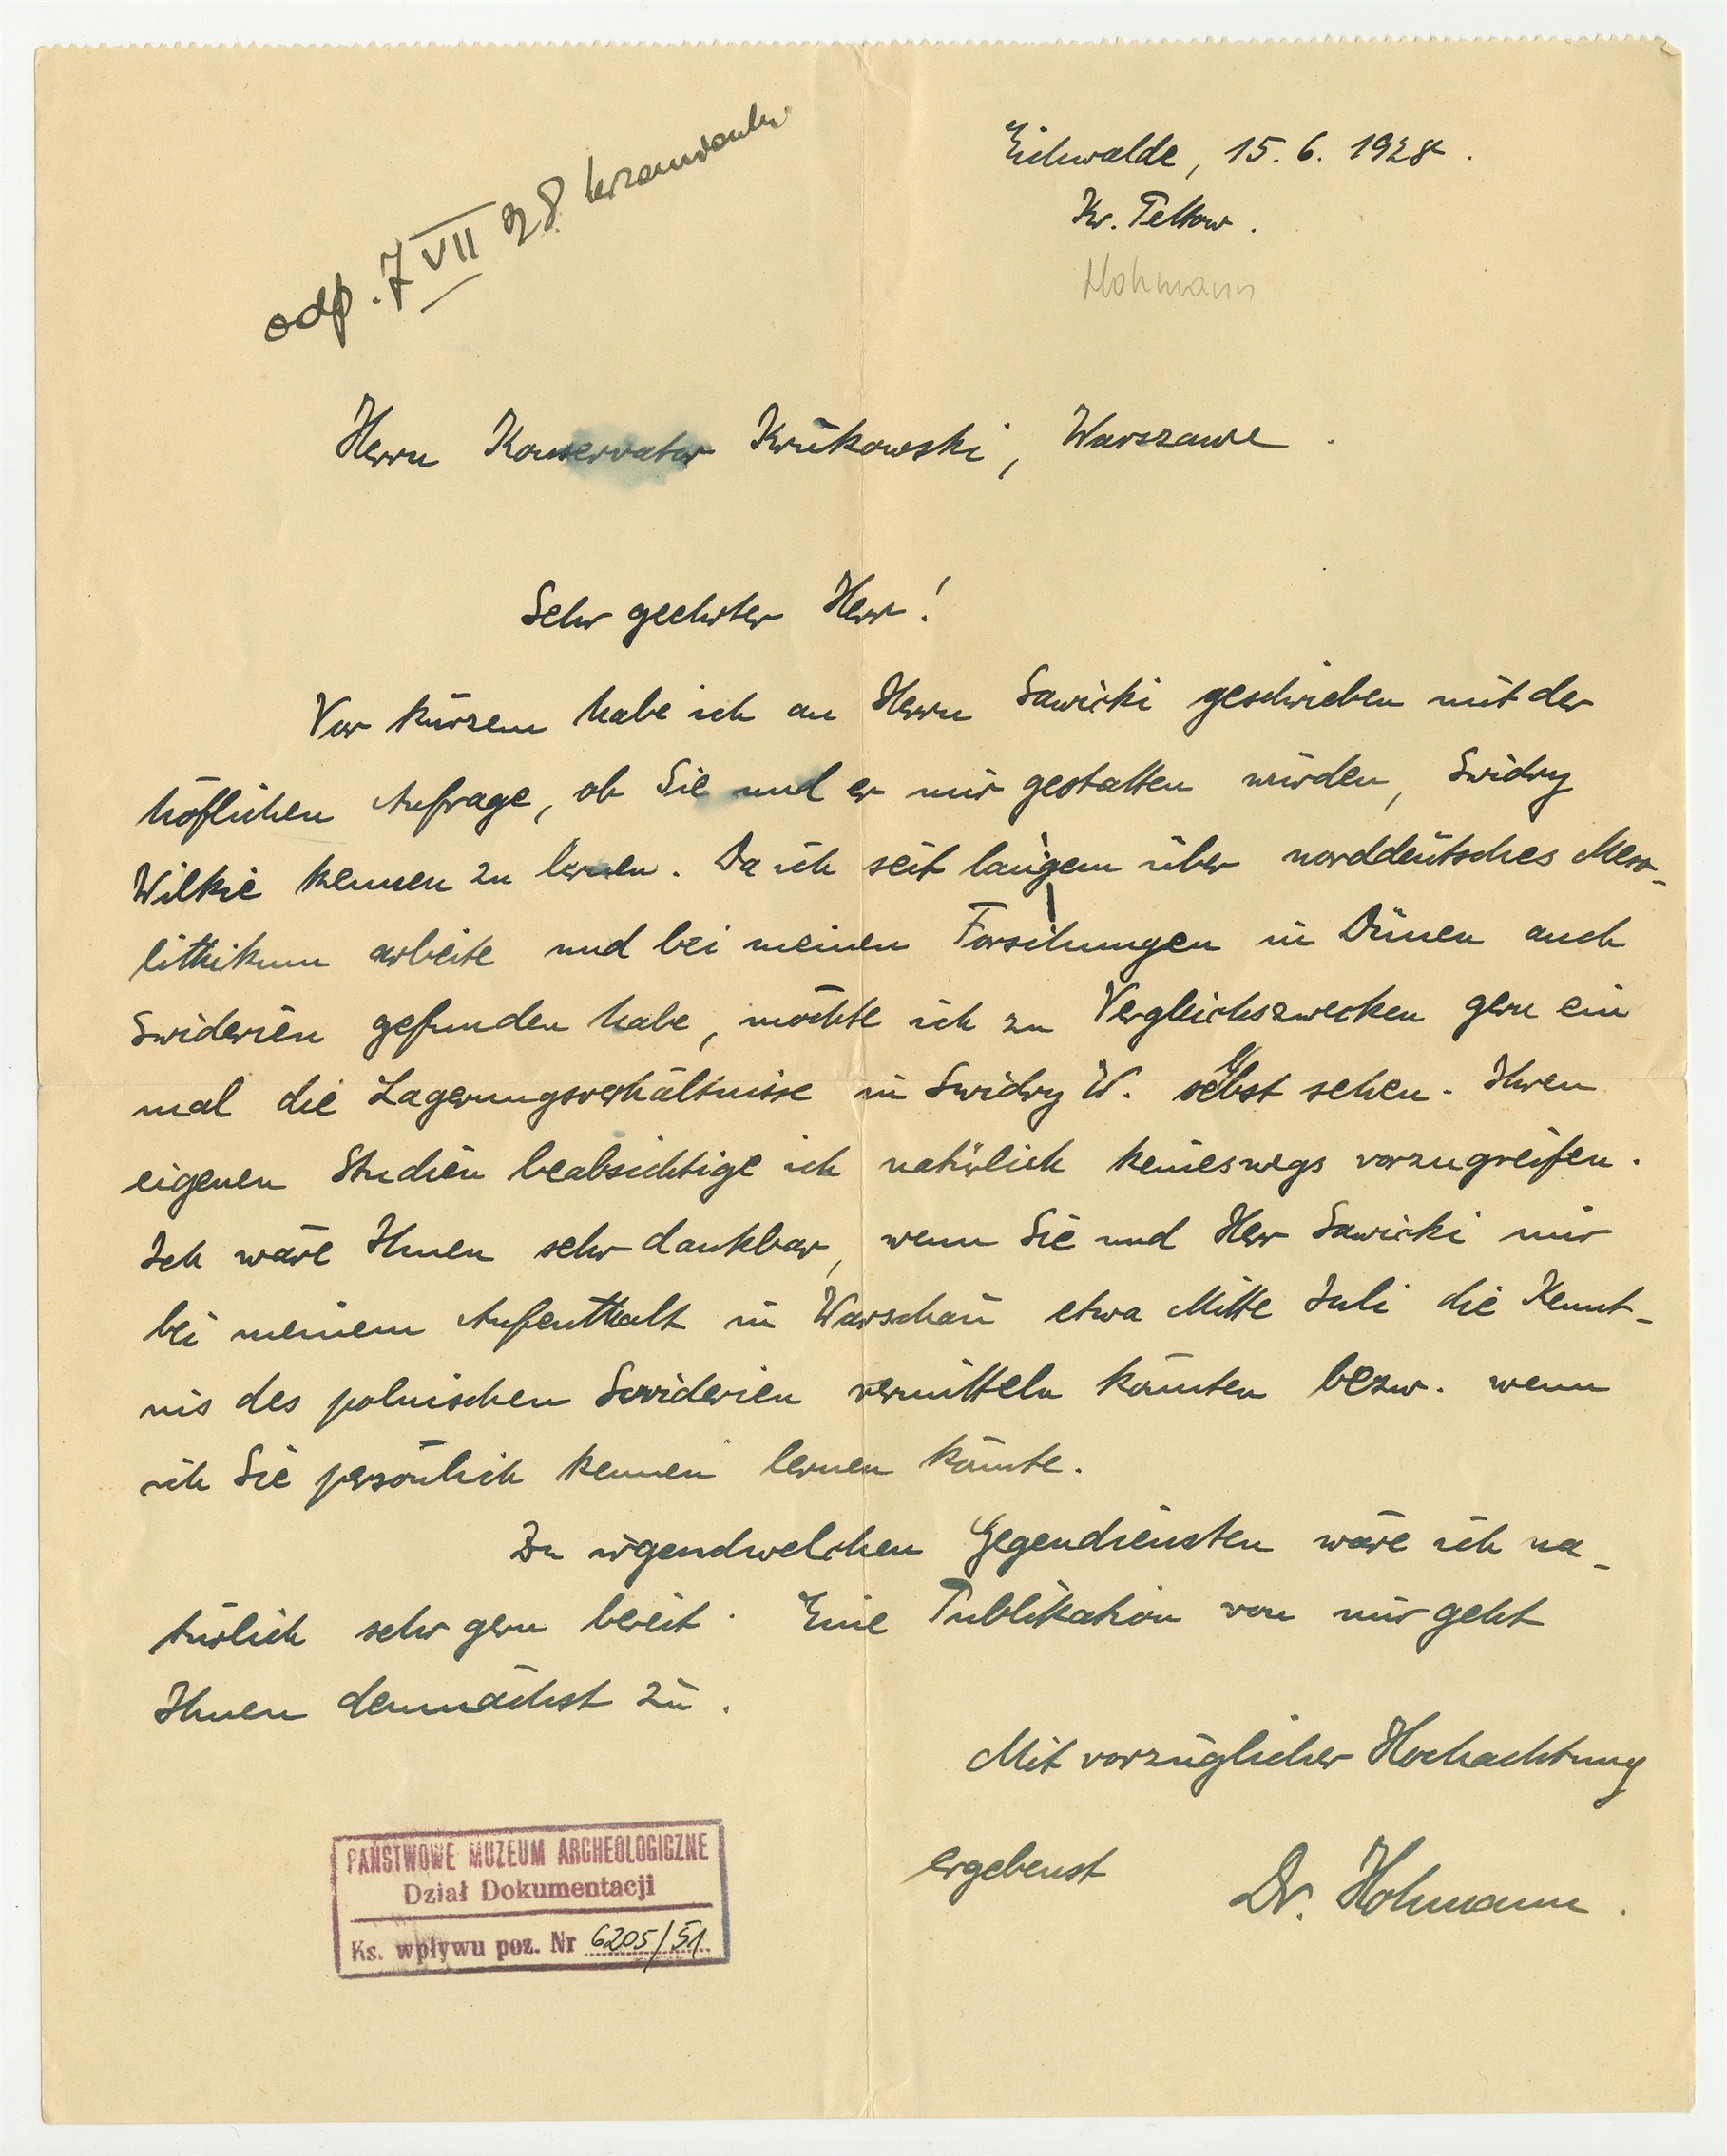 odp. 7 VII 28
Eichwalde, 15. 6. 1928.
Kr. Teltow.
Hohmann
Herrn Konservator Krukowski, Warszawa.
Sehr geehrter Herr!
Vor kurzem habe ich an Herrn Sawicki geschrieben mit der
höflichen Anfrage, ob Sie und er mir gestatten würden, Swidry
Wilkie kennen zu lernen. Da ich seit langem über norddeutsches Meso-
lithikum arbeite und bei meinen Forschungen in Dünen auch
Swiderien gefunden habe, möchte ich zu Vergleichszwecken gern ein
mal die Lagerungsverhältnisse in Swidry W. selbst sehen. Ihren
eigenen Studien beabsichtige ich natürlich keineswegs vorzugreifen.
Ich wäre Ihnen sehr dankbar, wenn Sie und Herr Sawicki mir
bei meinem Aufenthalt in Warschau etwa Mitte Juli die Kennt-
nis des polnischen Swiderien vermitteln könnten bezw. wenn
ich Sie persönlich kennen lernen könnte.
Zu irgendwelchen Gegendiensten wäre ich na-
türlich sehr gern bereit. Eine Publikation von mir geht
Ihnen demnächst zu.
Mit vorzüglicher Hochachtung
ergebenst Dr. Hohmann.
PAŃSTWOWE MUZEUM ARCHEOLOGICZNE
Dział Dokumentacji
Ks. wpływu poz. Nr 6205/51